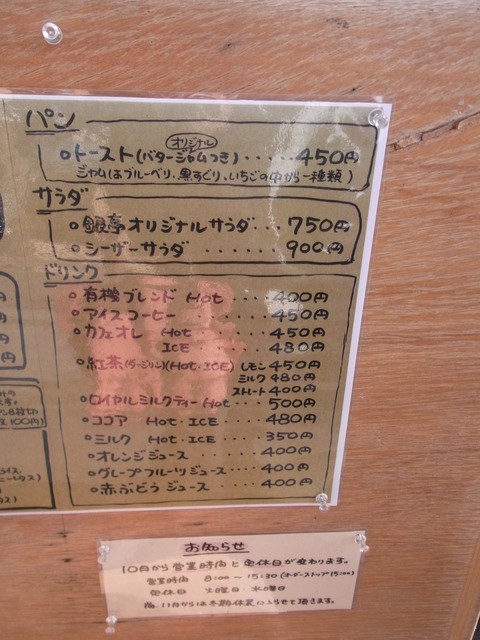 パン
オリジナル
○トースト(バタージャムつき)・・・・・450円
ジャム(はブルーベリ、黒すぐり、いちごの中から一種類)
サラダ
○銀亭オリジナルサラダ・・・750円
○シーザーサラダ・・・・・・・900円
ドリンク
○有機ブレンド Hot・・・・400円
○アイスコーヒー・・・・・450円
○カフェオレ Hot・・・・450円
ICE・・・・480円
○紅茶(ダージリン)(Hot・ICE) レモン450円
ミルク480円
ストレート400円
○ロイヤルミルクティー Hot・・500円
○ココア Hot・ICE・・・・480円
○ミルク Hot・ICE・・・・350円
○オレンジジュース・・・・400円
○グレープフルーツジュース・・・400円
○赤ぶどうジュース・・・・400円
100円)
お知らせ
10月から営業時間と定休日が変わります。
営業時間 8:00〜15:30(オーダーストップ15:00)
定休日 火曜日・水曜日
尚、11月からは冬期休業に入らせて頂きます。